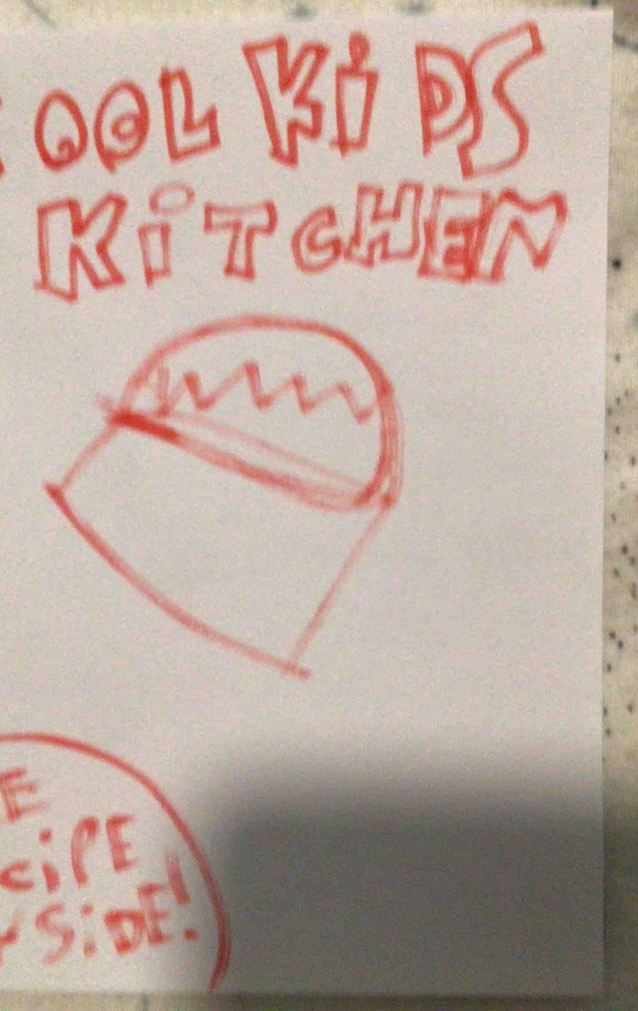 OOL KiDS
KiTCHEN
E
CiPE
SiDE!